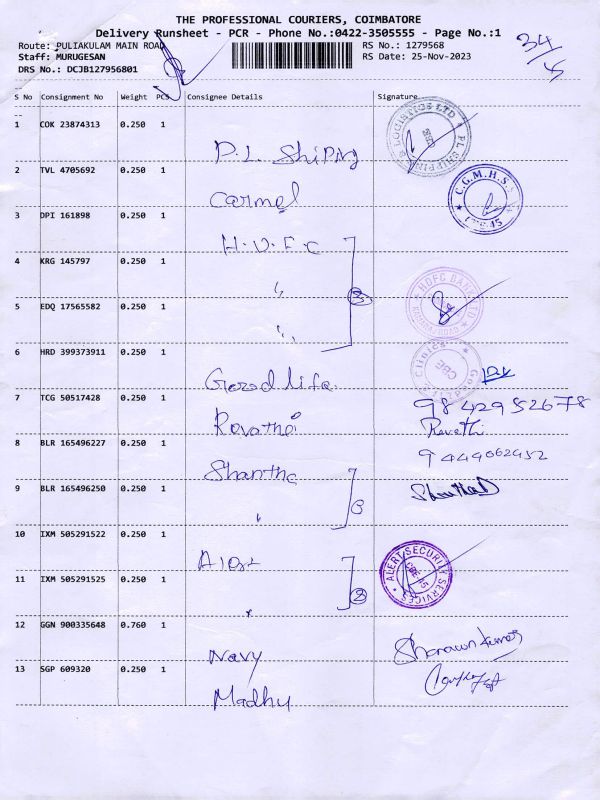 THE PROFESSIONAL COURIERS, COIMBATORE
Delivery Runsheet - PCR - Phone No.:0422-3505555 - Page No.:1
Route: PULIAKULAM MAIN ROAD RS No.: 1279568 34/5
Staff: MURUGESAN RS Date: 25-Nov-2023
DRS No.: DCJB127956801
S No Consignment No Weight PCS Consignee Details Signature
1 COK 23874313 0.250 1 P.L. Shiping PL SHIPPING & LOGISTICS LTD CBE
2 TVL 4705692 0.250 1 Carmel C.G.M.H.S.S CBE-45
3 DPI 161898 0.250 1 H.D.F.C
4 KRG 145797 0.250 1 " 3 HDFC BANK LTD RAMANATHAPURAM ROAD
5 EDQ 17565582 0.250 1 "
6 HRD 399373911 0.250 1 Good life. Clinics CBE
7 TCG 50517428 0.250 1 Revathi 9842952678
Revathi
8 BLR 165496227 0.250 1 Shantha 9449062452
9 BLR 165496250 0.250 1 "
10 IXM 505291522 0.250 1 Alert ALERT SECURITY SERVICES CBE
11 IXM 505291525 0.250 1 " 2
12 GGN 900335648 0.760 1 Navy Sharawn Kumar
13 SGP 609320 0.250 1 Madhu